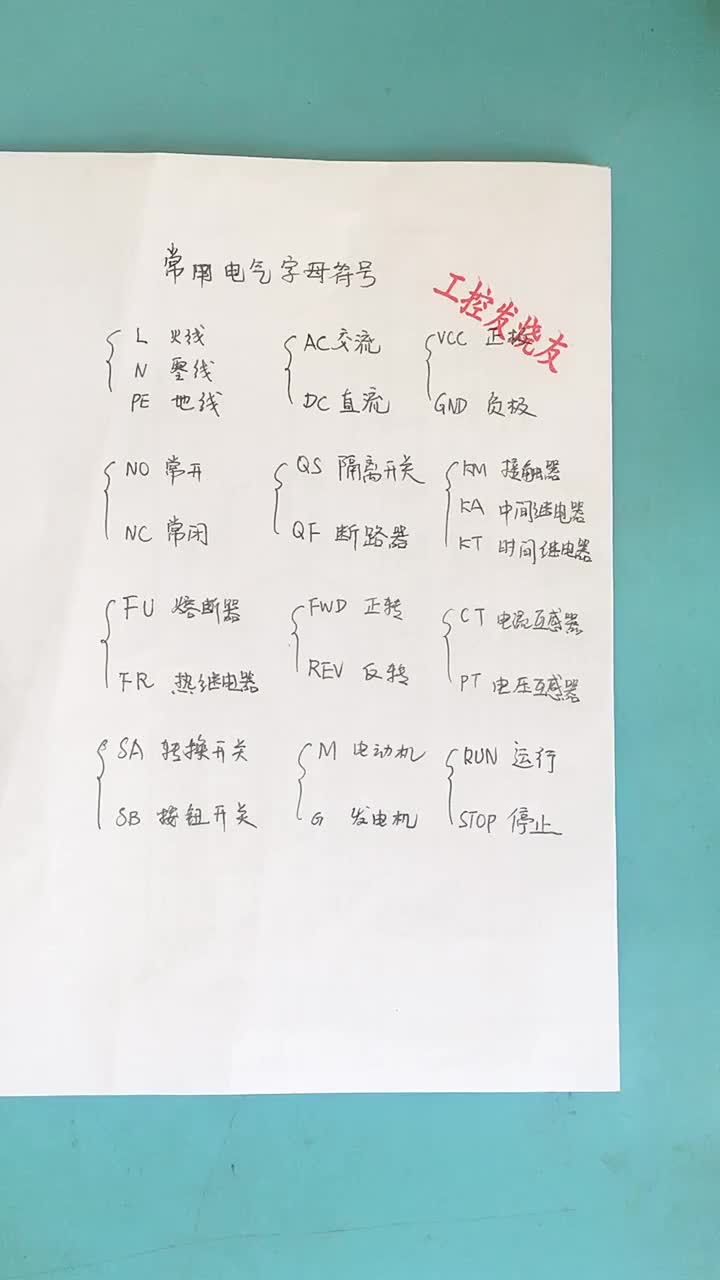 常用电气字母符号
工控发烧友
L 火线
N 零线
PE 地线
AC 交流
DC 直流
VCC 正极
GND 负极
NO 常开
NC 常闭
QS 隔离开关
QF 断路器
KM 接触器
KA 中间继电器
KT 时间继电器
FU 熔断器
FR 热继电器
FWD 正转
REV 反转
CT 电流互感器
PT 电压互感器
SA 转换开关
SB 按钮开关
M 电动机
G 发电机
RUN 运行
STOP 停止